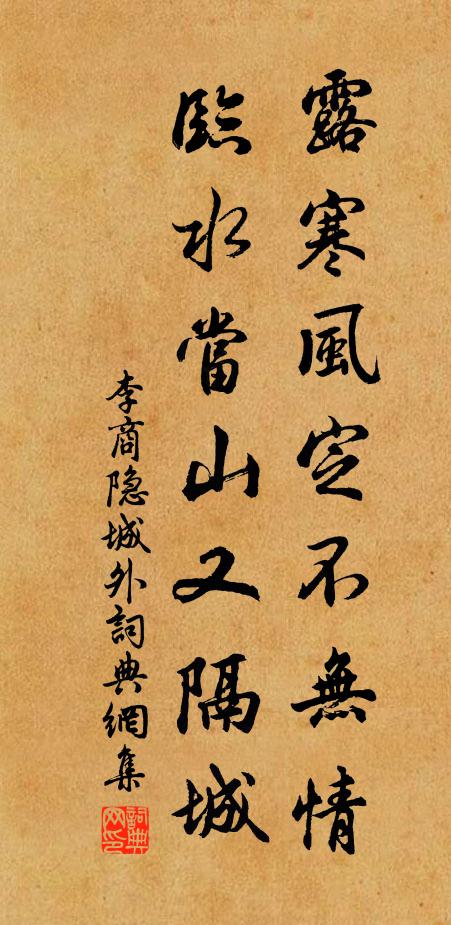 露寒風定不無情
臨水當山又隔城
李商隐城外詞典網集
詞典網印